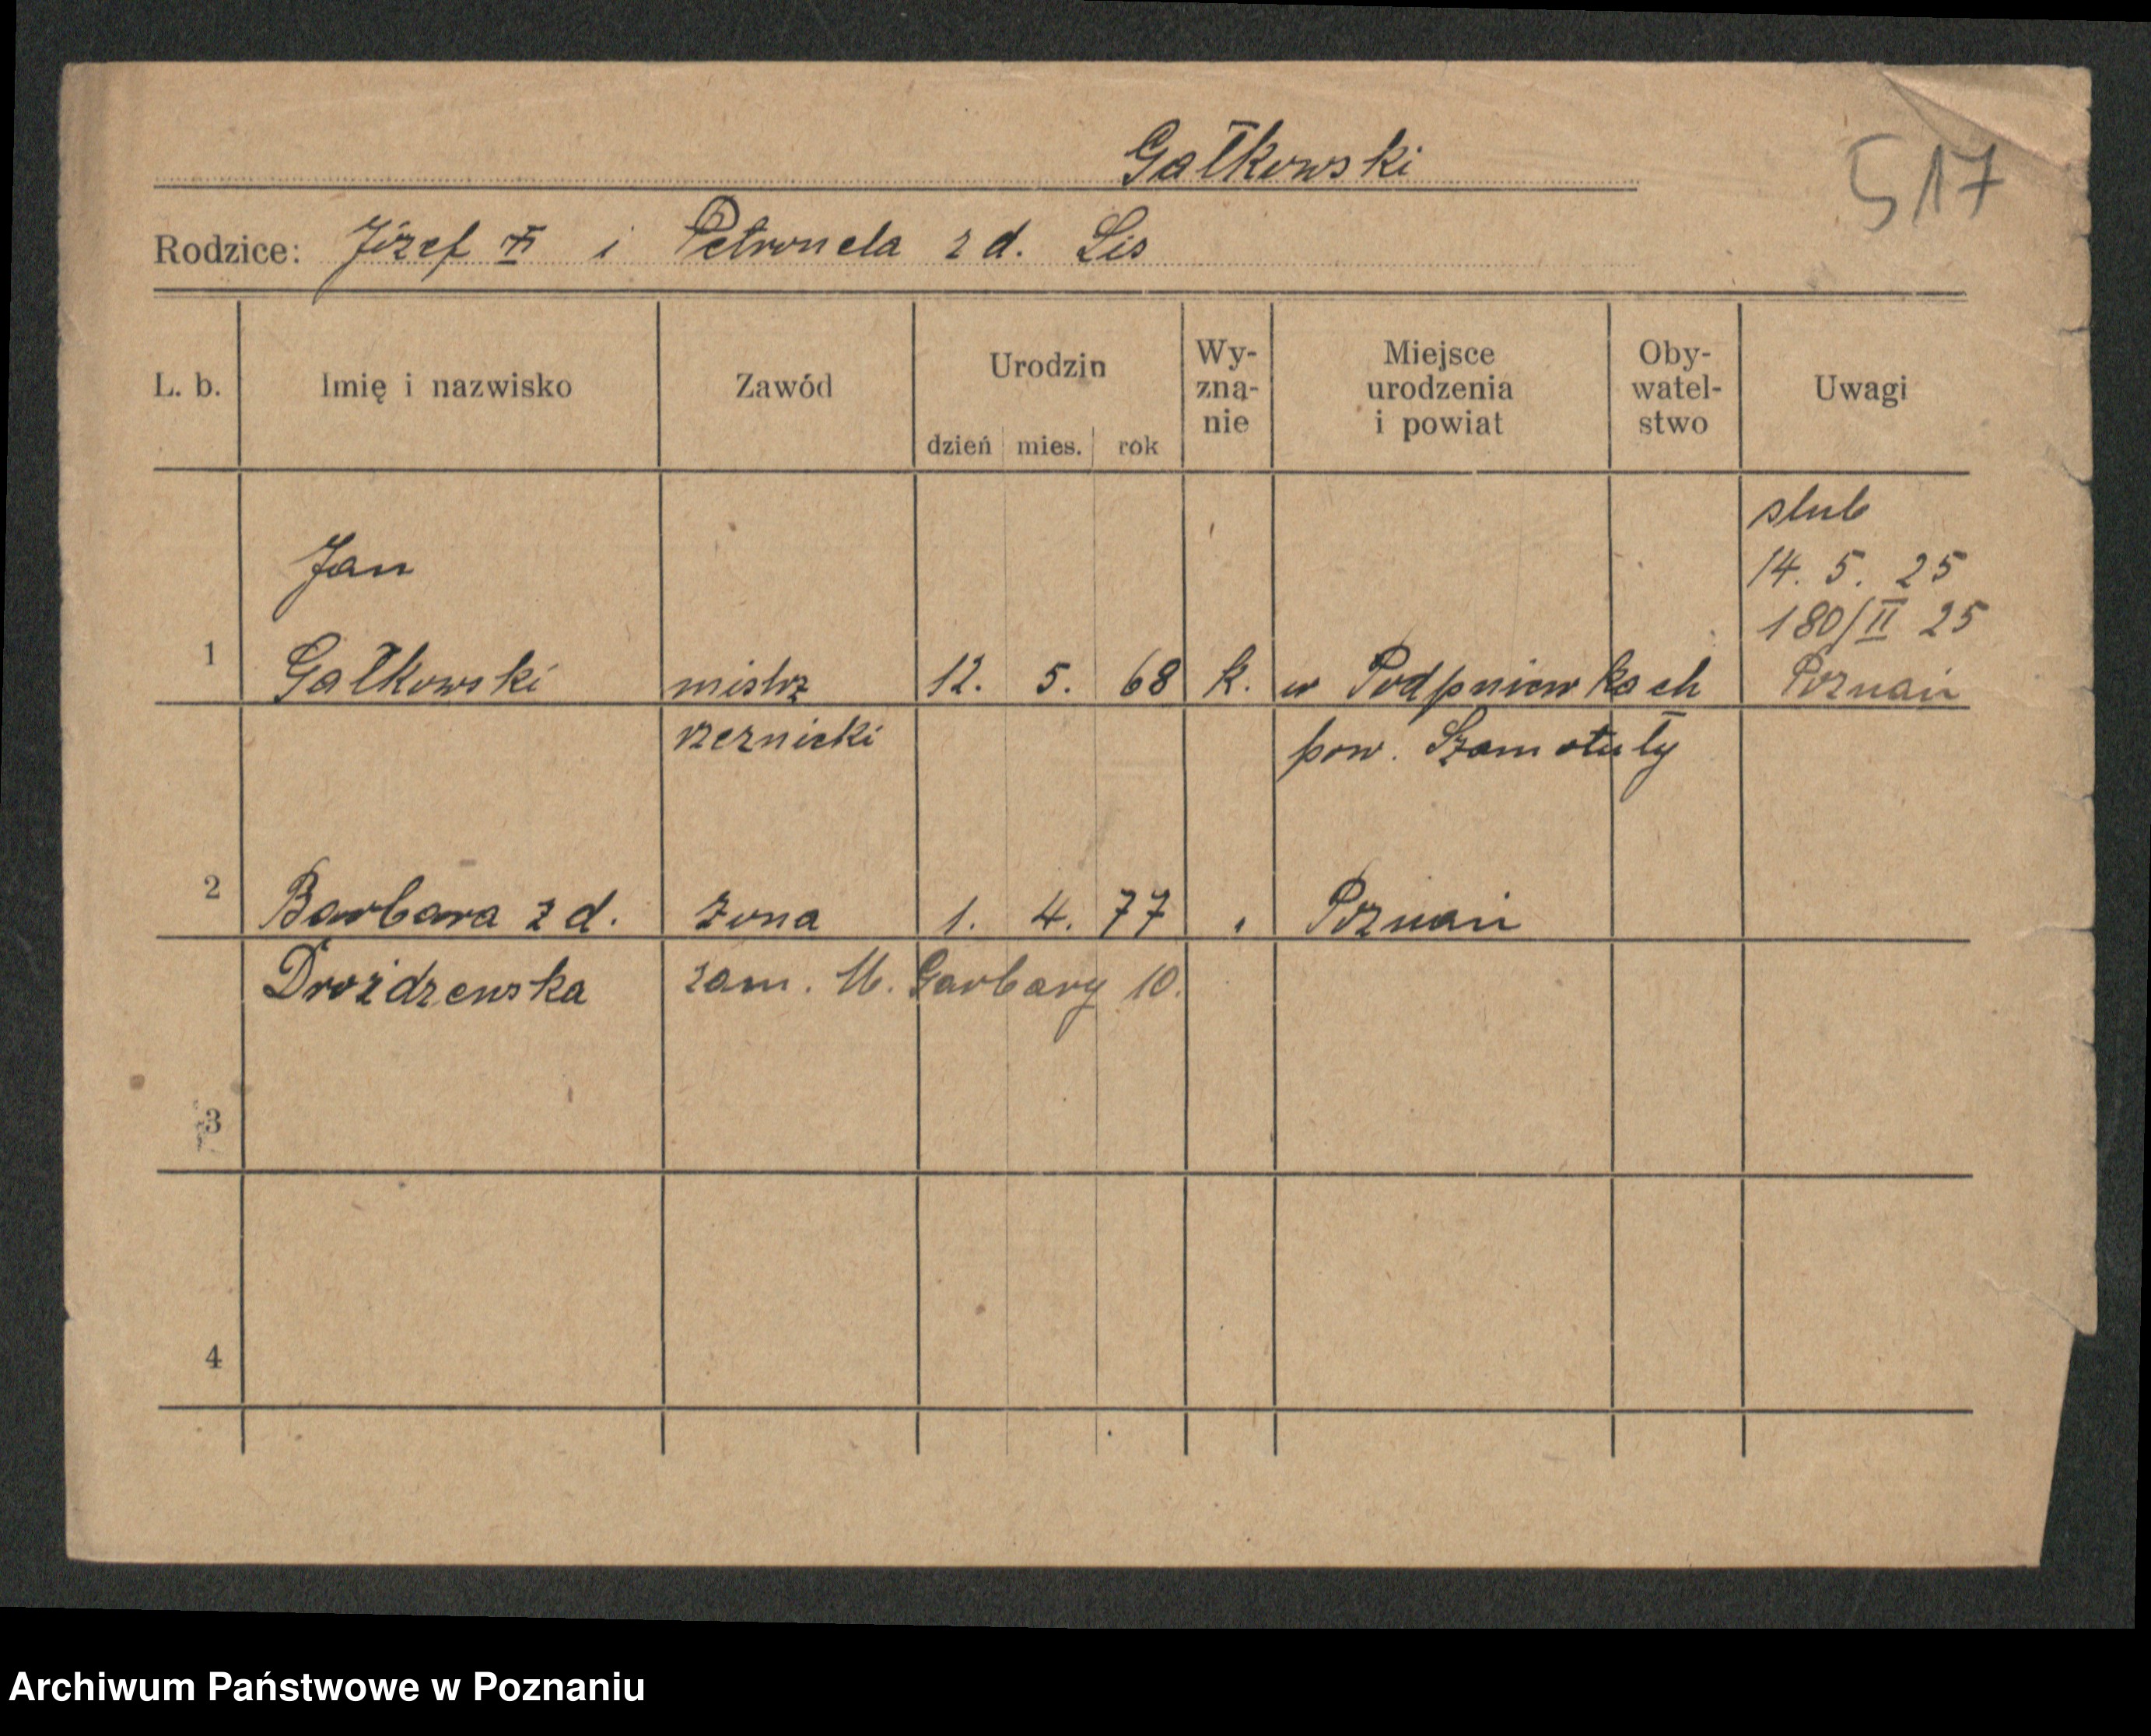 Gałkowski
517
Rodzice: Józef i Petronela z d. Lis
L. b. Imię i nazwisko Zawód Urodzin dzień mies. rok Wy-zna-nie Miejsce urodzenia i powiat Oby-watel-stwo Uwagi
slub
Jan 14. 5. 25
180/II 25
1 Gałkowski mistrz 12. 5. 68 k. w Podpniewkach Poznań
rzeźnicki pow. Szamotuły
2 Barbara z d. żona 1. 4. 77 " Poznań
Drożdzewska zam. W. Garbary 10.
3
4
Archiwum Państwowe w Poznaniu